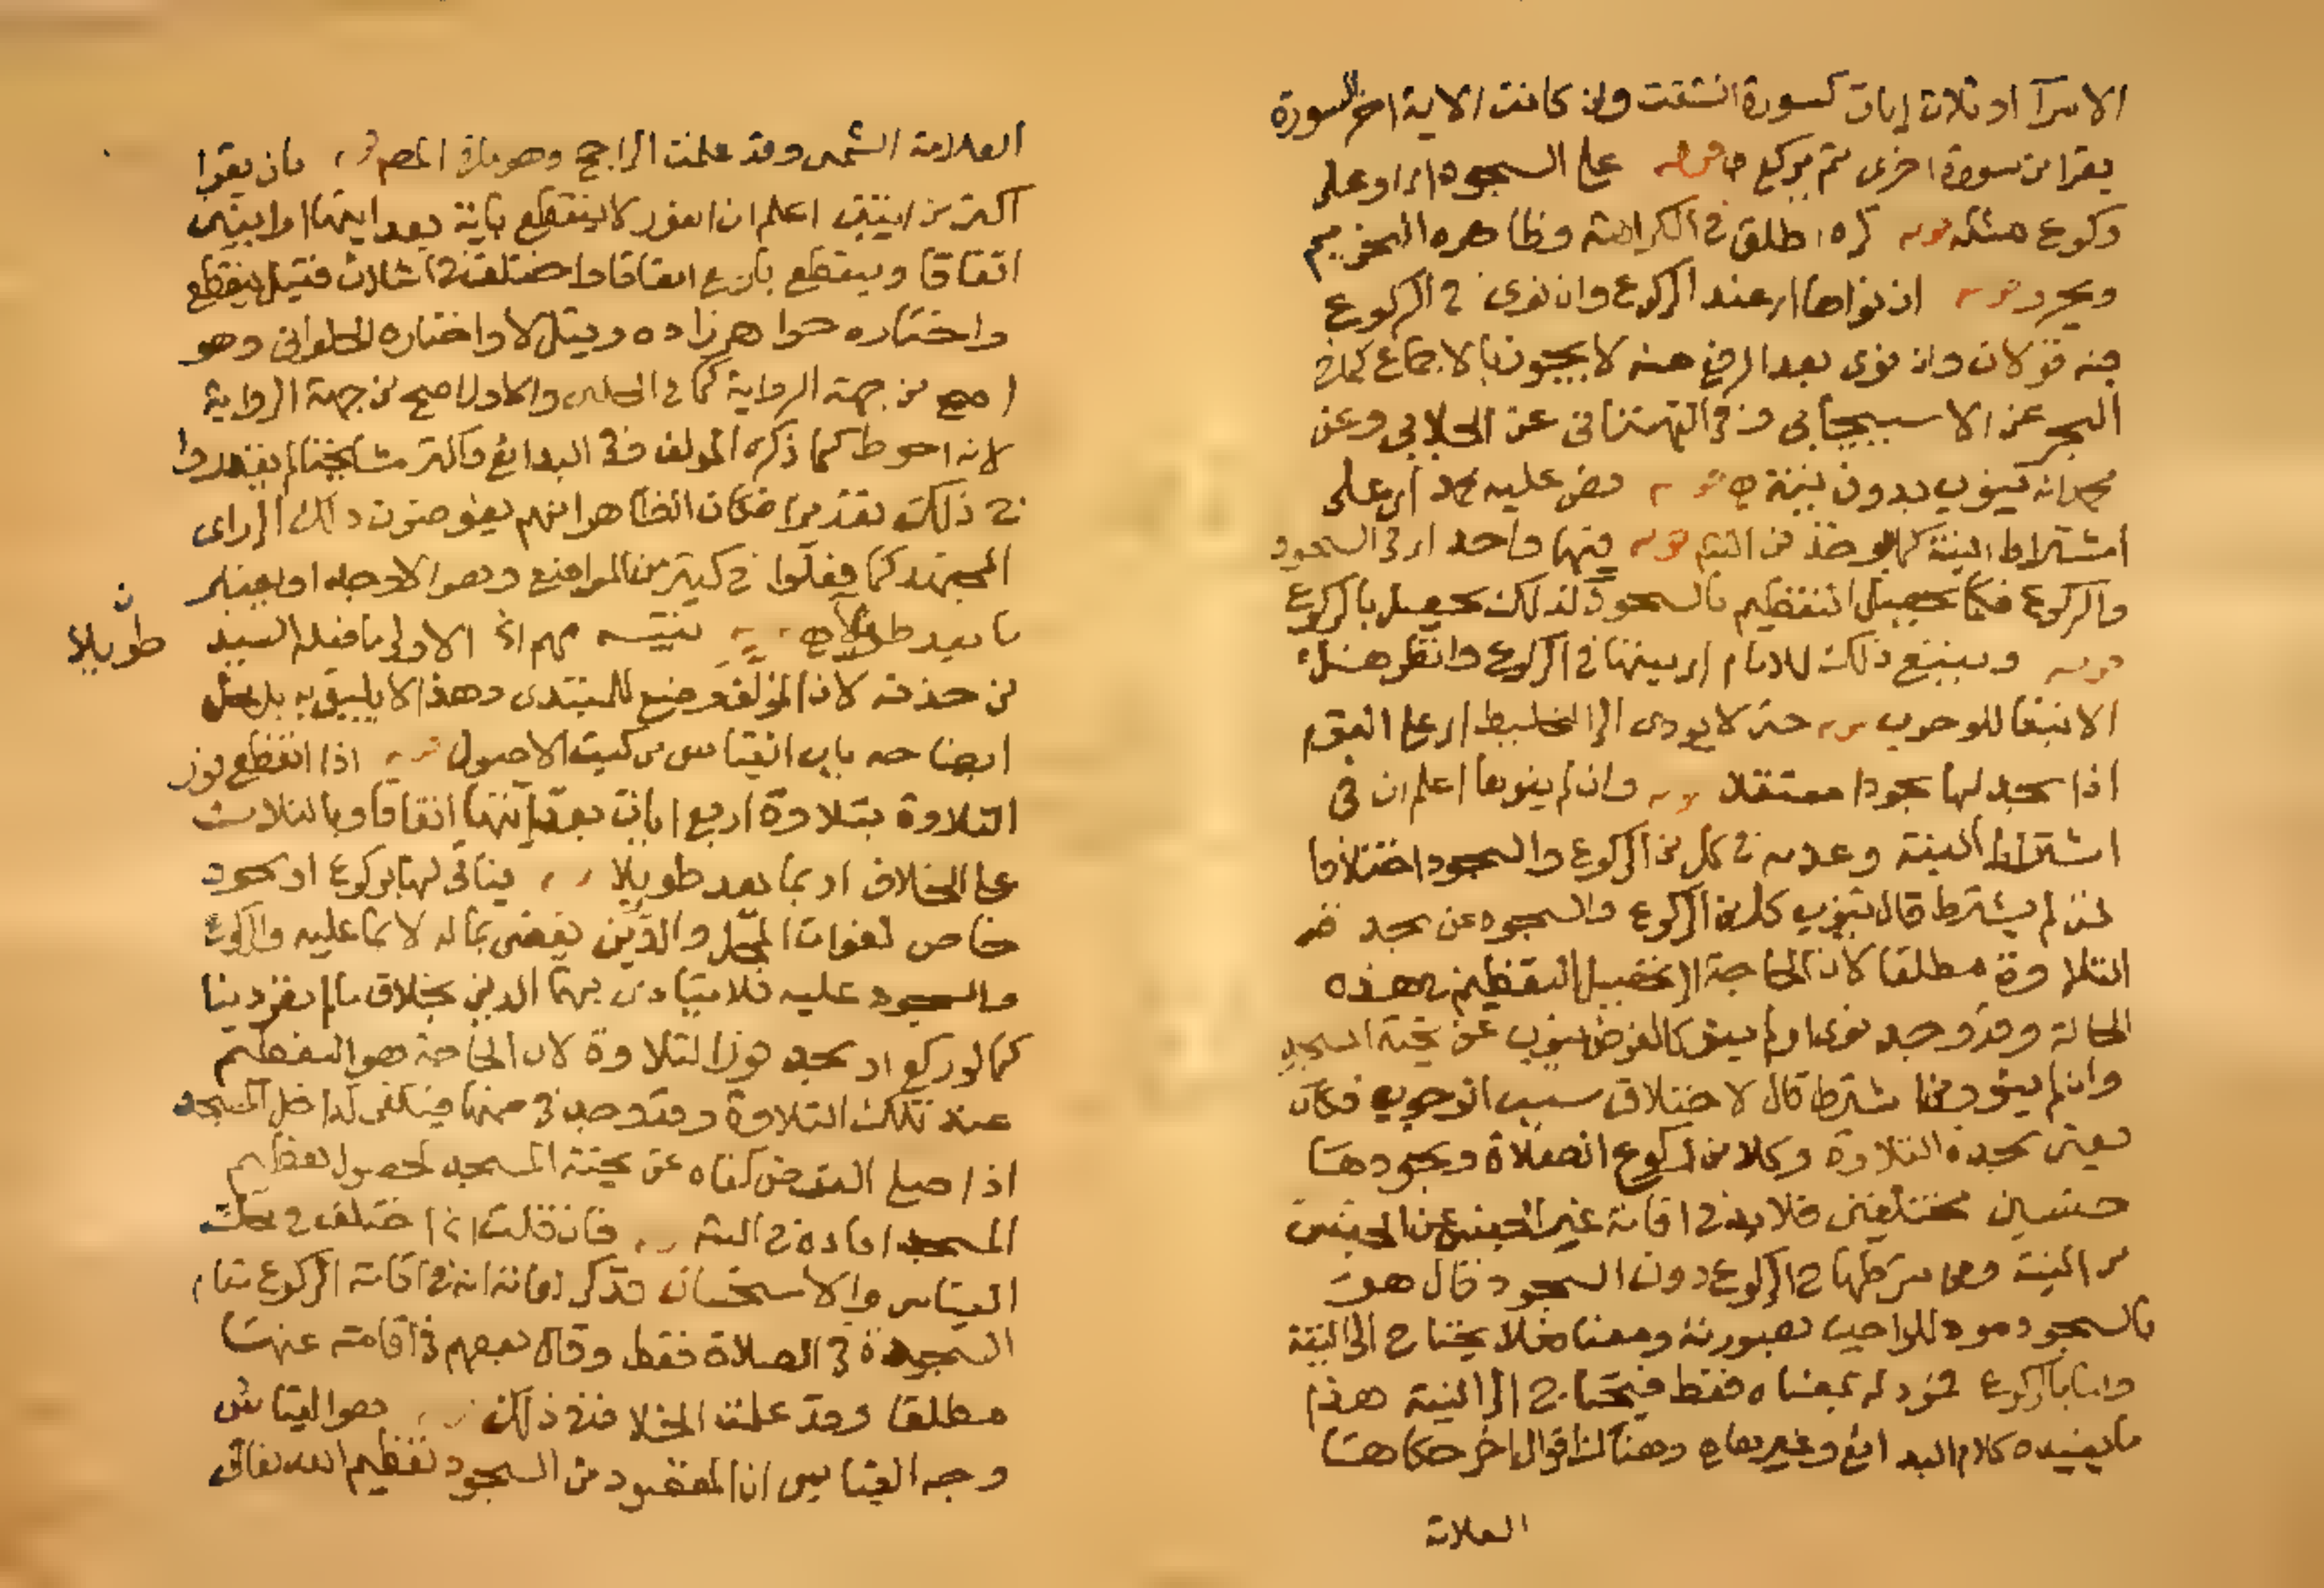 الاسرآ او ثلاث ايات كسورة انشقت وان كانت الاية اخر السورة
يقرا من سورة اخرى ثم يركع قوله على السجود اي او على
ركوع مثله قوله كره اطلق في الكراهة وظاهره التحريم
قوله ان نواها اي عند الركوع وان نوى في الركوع
فيه قولان وان نوى بعد الرفع منه لا يجوز بالاجماع كما في
البحر عن الاسبيجابي وفي القهستاني عن الجلابي وعن
محمد انه ينوب بدون نية قوله نص عليه محمد اي على
اشتراط النية كما يوخذ من قوله فيهما واحد اي في السجود
والركوع فكما يحصل التعظيم بالسجود كذلك يحصل بالركوع
قوله وينبغي ذلك للامام اي نيتها في الركوع وانظر هل
الانبغا للوجوب قوله حتى لا يودي الى التخليط اي على القوم
اذا سجد لها سجودا مستقلا قوله وان لم ينوها اعلم ان في
اشتراط النية وعدمه في كل من الركوع والسجود اختلافا
فمن لم يشترط قال ينوب كل من الركوع والسجود عن سجدة
التلاوة مطلقا لان الحاجة الى تحصيل التعظيم في هذه
الحالة وقد وجد نوى او لم ينو كالفرض ينوب عن تحية المسجد
وان لم ينو ومن اشترط قال لاختلاف سبب الوجوب فكان
يعني سجدة التلاوة وكلا من ركوع الصلاة وسجودها
جنسين مختلفين فلا بد في اقامة غير الجنس عن الجنس
من النية ومن شرطها في الركوع دون السجود قال هو
بالسجود مود للواجب بصورته ومعناه فلا يحتاج الى النية
واما بالركوع فمود له بمعناه فقط فيحتاج الى النية هذا
ما يفيده كلام البدائع وغيرها وهناك اقوال اخر حكاها
العلامة
العلامة الشمس وقد علمت الراجح وهو ما في المص قوله بان يقرا
اكثر من ايتين اعلم ان الفور لا ينقطع باية بعد ايتها او ايتين
اتفاقا وينقطع باربع اتفاقا واختلف في الثلاث فقيل ينقطع
واختاره خواهر زاده وقيل لا واختاره الحلواني وهو
اصح من جهة الرواية كما في الحلبي والاول اصح من جهة الرواية
لانه احوط كما ذكره المولف وفي البدائع واكثر مشايخنا لم يقدروا
في ذلك تقديرا فكان الظاهر انهم يفوضون ذلك الى راى
المجتهد كما فعلوا في كثير من المواضع وهو الاوجه او يعتبر
ما يعد طويلا قوله تنبيه مهم الخ الاولى ما فعله السيد
ن
طويلا
من حذفه لان المؤلف وضع للمبتدى وهذا لا يليق به بل محل
ايضاحه باب القياس من كتب الاصول قوله اذا انقطع فور
التلاوة بتلاوة اربع ايات بعد ايتها اتفاقا وبالثلاث
على الخلاف او بما يعد طويلا قوله فياتي لها بركوع او سجود
خاص لفوات المحل والدين يقضى بما له لا بما عليه والركوع
والسجود عليه فلا يتادى بهما الدين بخلاف ما لم تصر دينا
كما لو ركع او سجد فور التلاوة لان الحاجة هو التعظيم
عند تلك التلاوة وقد وجد في ضمنها فيكفي كداخل المسجد
اذا صلى الفرض كفاه عن تحية المسجد لحصول تعظيم
المسجد افاده في قوله فان قلت اذا اختلف في محل
القياس والاستحسان فذكر انه في اقامة الركوع مقام
السجدة في الصلاة فقط وقال بعضهم في اقامته عنها
مطلقا وقد علمت الخلاف في ذلك قوله هو القياس
وجه القياس ان المقصود من السجود تعظيم الله تعالى